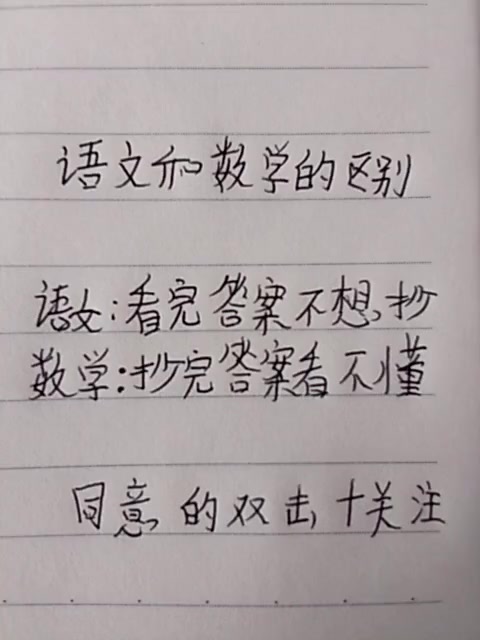 语文和数学的区别
语文:看完答案不想抄
数学:抄完答案看不懂
同意的双击十关注